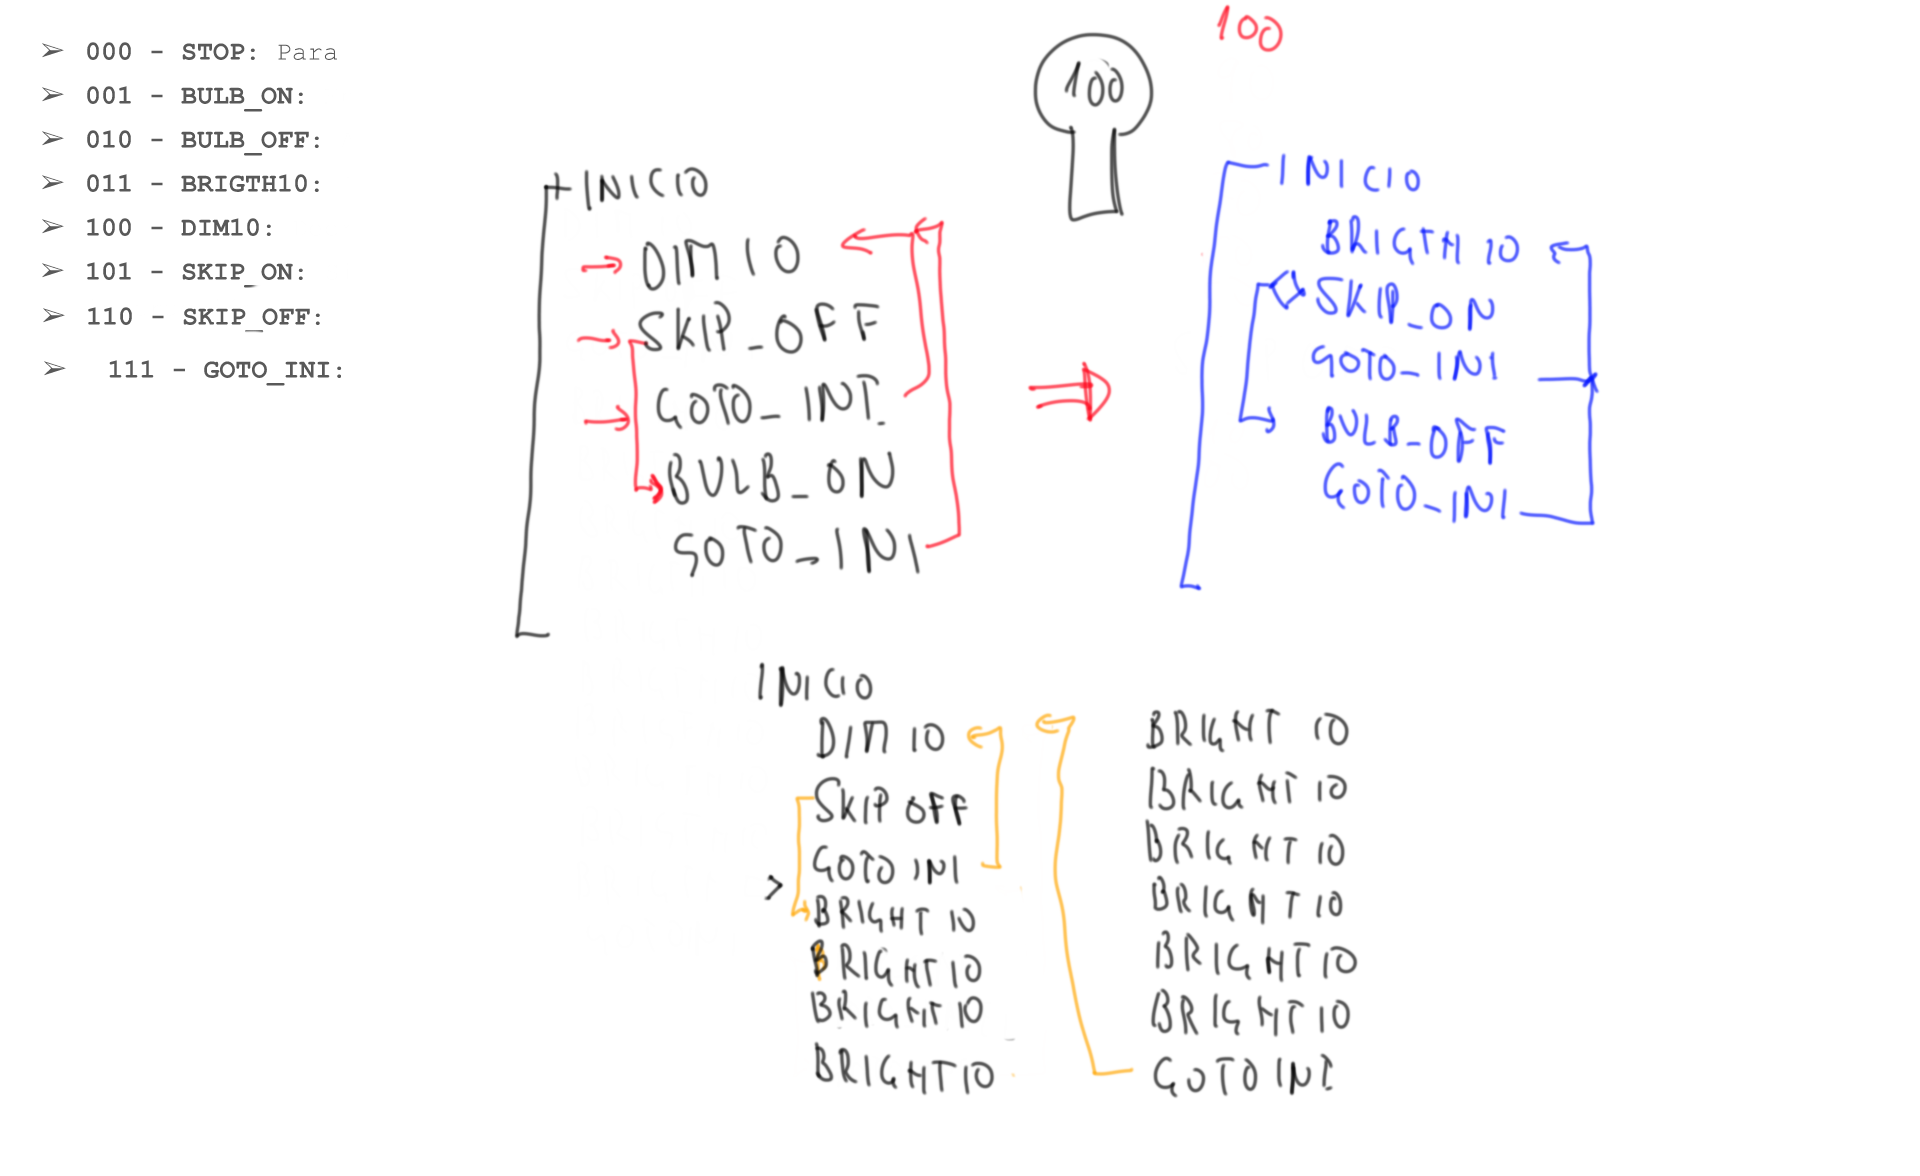 ➢ 000 - STOP: Para
➢ 001 - BULB_ON:
➢ 010 - BULB_OFF:
➢ 011 - BRIGTH10:
➢ 100 - DIM10:
➢ 101 - SKIP_ON:
➢ 110 - SKIP_OFF:
➢ 111 - GOTO_INI:
100
100
INICIO
DIM 10
SKIP_OFF
GOTO_INI
BULB_ON
GOTO_INI
INICIO
BRIGTH 10
SKIP_ON
GOTO_INI
BULB_OFF
GOTO_INI
INICIO
DIM 10
SKIP OFF
GOTO INI
BRIGHT 10
BRIGHT 10
BRIGHT 10
BRIGHT 10
BRIGHT 10
BRIGHT 10
BRIGHT 10
BRIGHT 10
BRIGHT 10
BRIGHT 10
GOTO INI